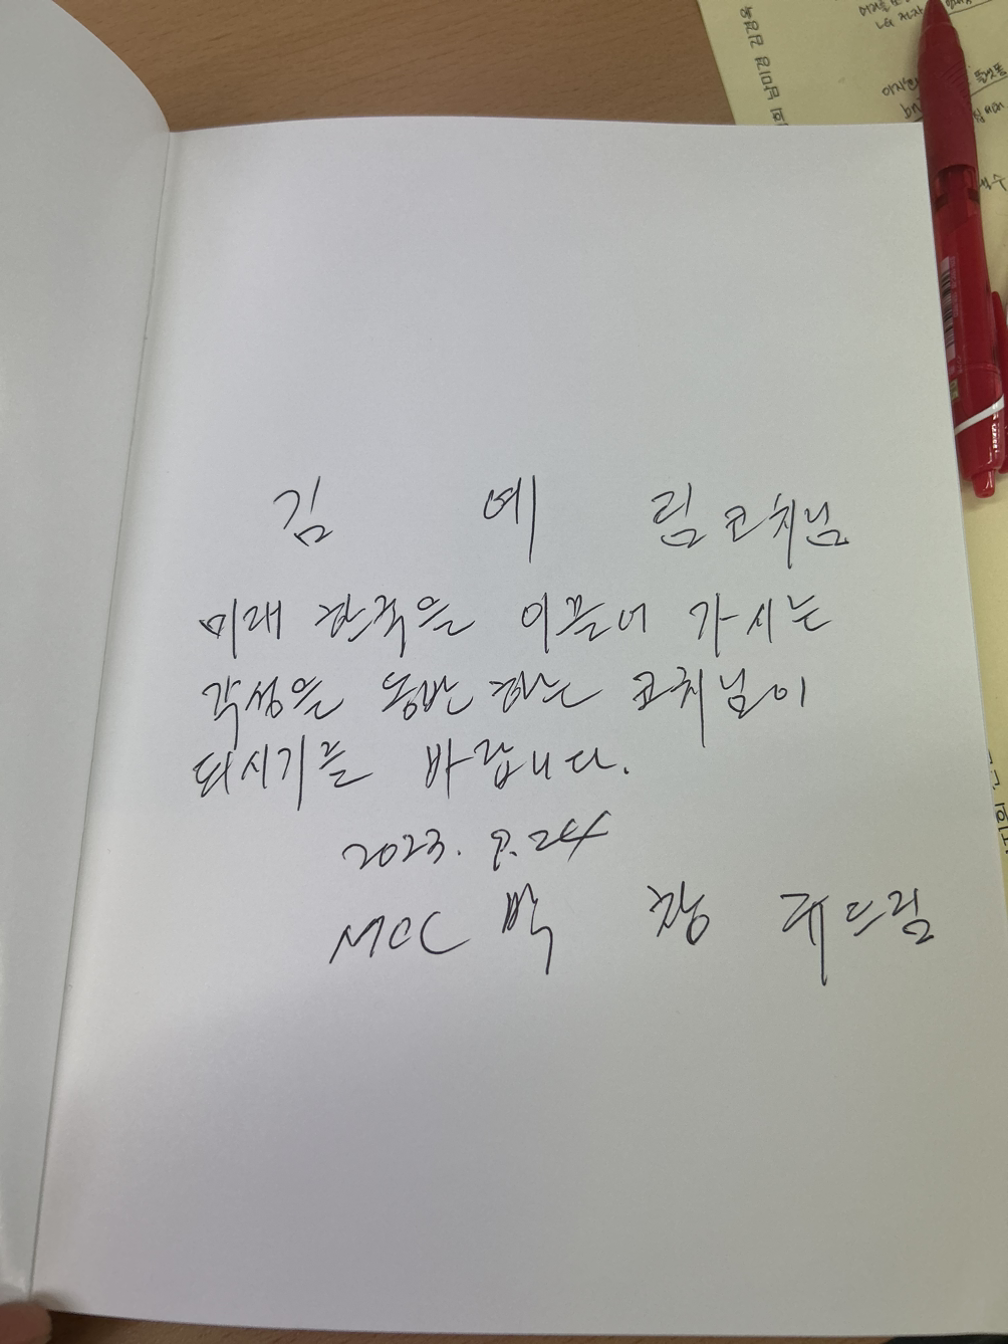 김 예 림 코치님
미래 한국을 이끌어 가시는
각성을 동반하는 코치님이
되시기를 바랍니다.
2023. 9. 24
MCC 박 창 규 드림